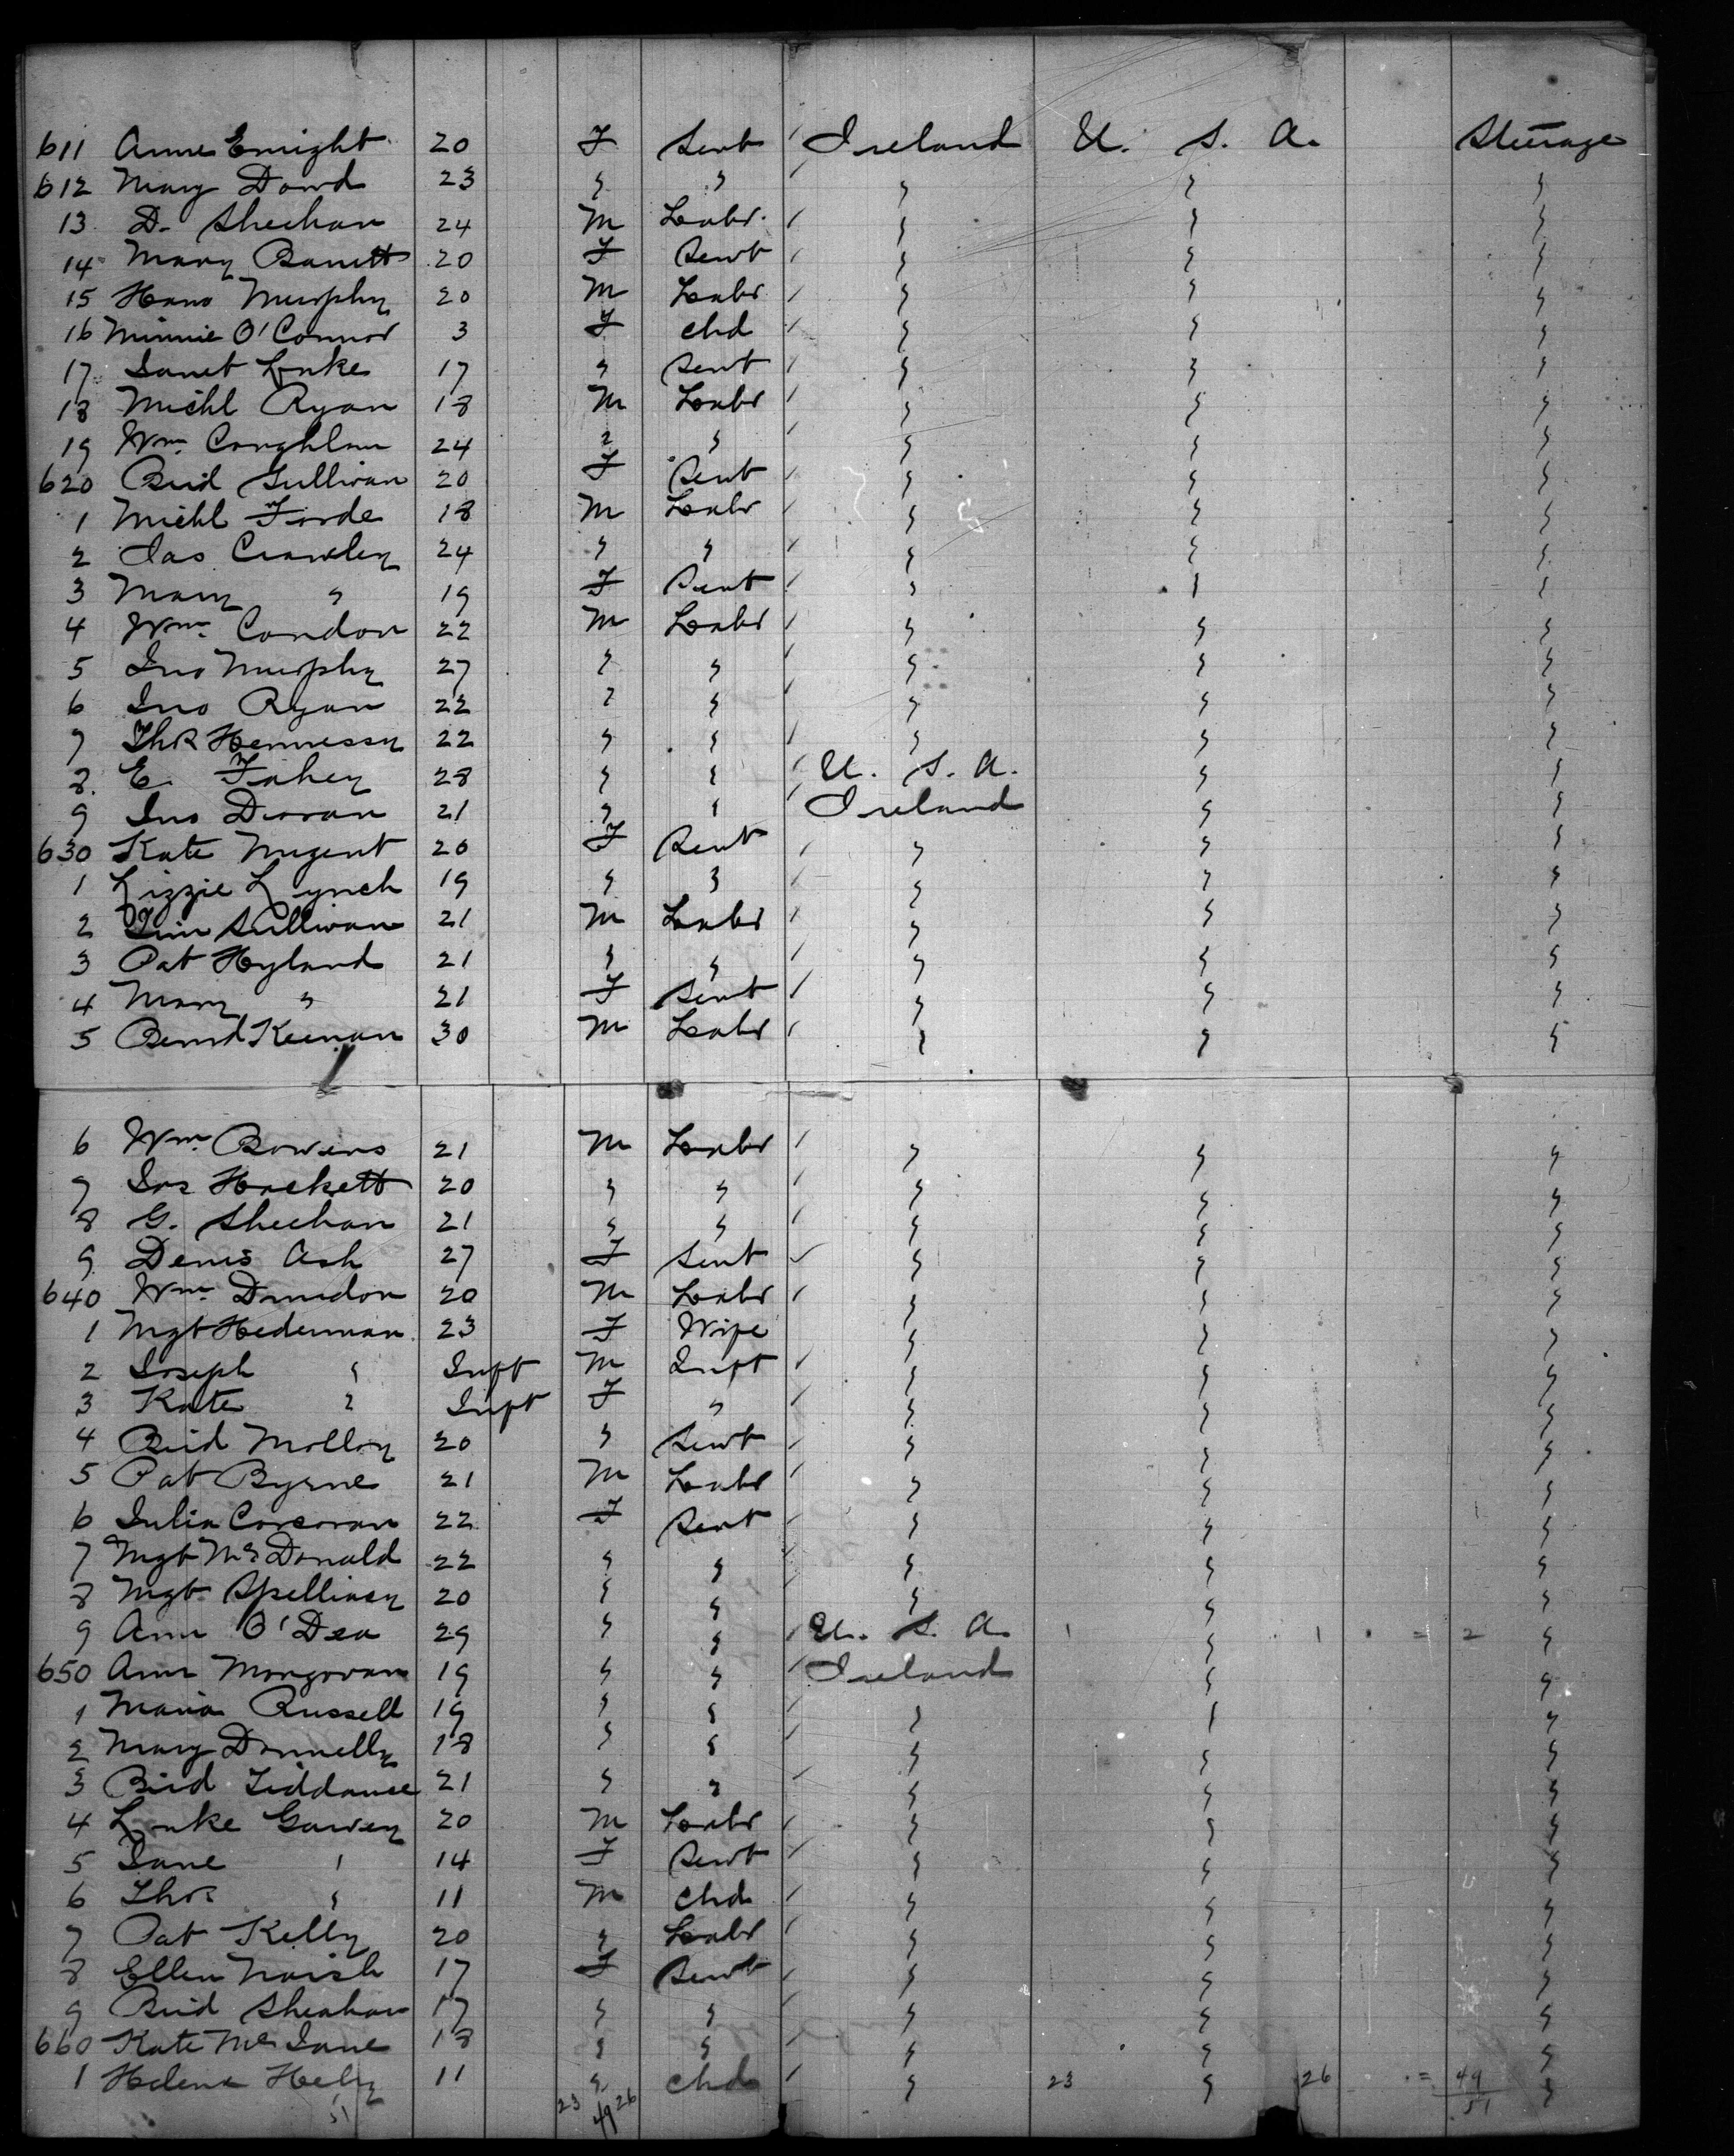 611 Anne Enright 20 F Servt Ireland U. S. A. Steerage
612 Mary Dowd 23 " " " " "
13 D. Sheehan 24 M Labr " " "
14 Mary Barrett 20 F Servt " " "
15 Hano Murphy 20 M Labr " " "
16 Minnie O'Connor 3 F chd " " "
17 Janet Luke 17 " Servt " " "
18 Michl Ryan 18 M Labr " " "
19 Wm. Coughlan 24 " " " " "
620 Brid Sullivan 20 F Servt " " "
1 Michl Forde 18 M Labr " " "
2 Jas Crowley 24 " " " " "
3 Mary " 19 F Servt " " "
4 Wm. Condon 22 M Labr " " "
5 Jno Murphy 27 " " " " "
6 Jno Ryan 22 " " " " "
7 Thos Hennessy 22 " " " " "
8 E. Fahey 28 " " U. S. A. " "
9 Jno Doran 21 " " Ireland " "
630 Kate Nugent 20 F Servt " " "
1 Lizzie Lynch 19 " " " " "
2 Tim Sullivan 21 M Labr " " "
3 Pat Hyland 21 " " " " "
4 Mary " 21 F Servt " " "
5 Bernd Keenan 30 M Labr " " "
6 Wm. Bowens 21 M Labr " " "
7 Jos Hackett 20 " " " " "
8 G. Sheehan 21 " " " " "
9 Denis Ash 27 F Servt " " "
640 Wm 20 M Labr " " "
1 Mgt Hederman 23 F Wife " " "
2 Joseph " Inft M Inft " " "
3 Kate " Inft F " " " "
4 Brid Molloy 20 " Servt " " "
5 Pat Byrne 21 M Labr " " "
6 Julia Corcoran 22 F Servt " " "
7 Mgt McDonald 22 " " " " "
8 Mgt Spellissy 20 " " " " "
9 Ann O'Dea 29 " " U. S. A. 1 " 1 = 2 "
650 Ann Mongovan 19 " " Ireland " "
1 Maria Russell 19 " " " " "
2 Mary Donnelly 18 " " " " "
3 Brid 21 " " " " "
4 Luke Garvey 20 M Labr " " "
5 Jane " 14 F Servt " " "
6 Thos " 11 M chd " " "
7 Pat Kelly 20 " Labr " " "
8 Ellen Naish 17 F Servt " " "
9 Brid Sheahan 17 " " " " "
660 Kate McJane 18 " " " " "
1 Helena Hely 11 " chd " 23 " 26 = 49 "
51 23 49 26 51